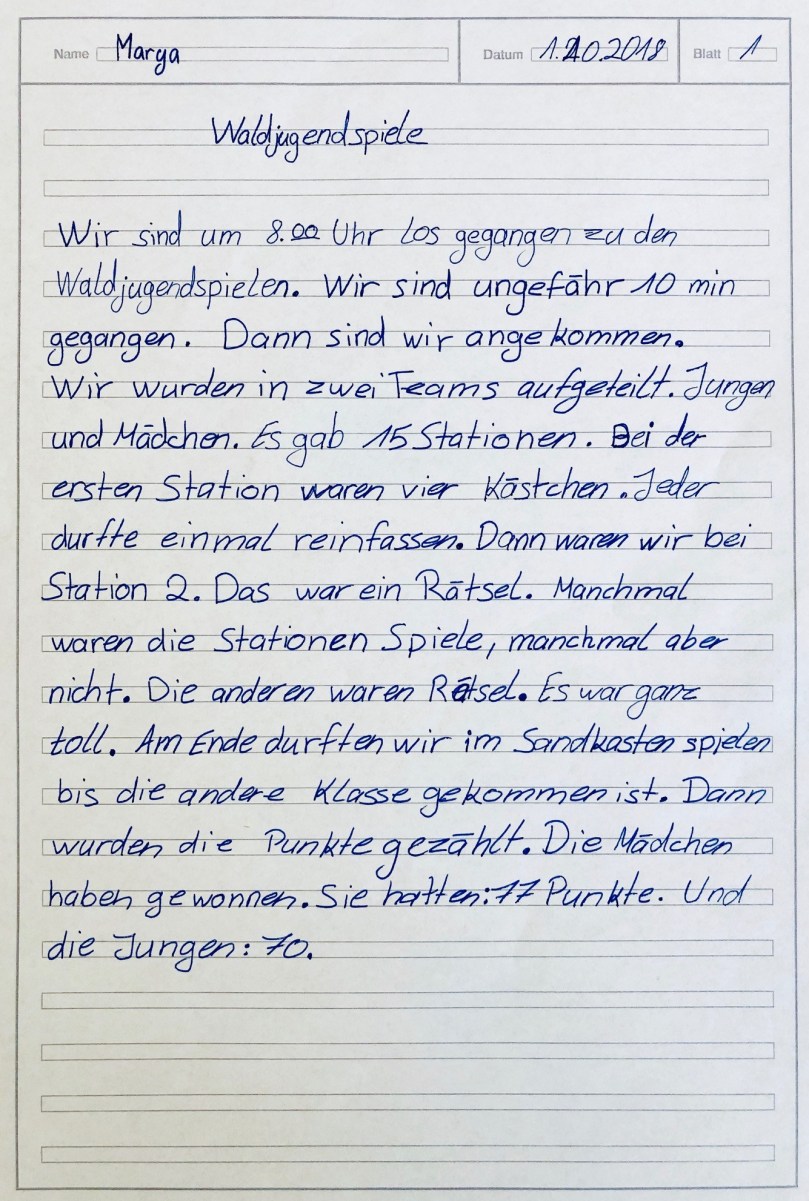 Name Marya Datum 1.10.2018 Blatt 1
Waldjugendspiele
Wir sind um 8.00 Uhr los gegangen zu den
Waldjugendspielen. Wir sind ungefähr 10 min
gegangen. Dann sind wir ange kommen.
Wir wurden in zwei Teams aufgeteilt. Jungen
und Mädchen. Es gab 15 Stationen. Bei der
ersten Station waren vier Kästchen. Jeder
durfte einmal reinfassen. Dann waren wir bei
Station 2. Das war ein Rätsel. Manchmal
waren die Stationen Spiele, manchmal aber
nicht. Die anderen waren Rätsel. Es war ganz
toll. Am Ende durften wir im Sandkasten spielen
bis die andere Klasse gekommen ist. Dann
wurden die Punkte gezählt. Die Mädchen
haben gewonnen. Sie hatten: 77 Punkte. Und
die Jungen: 70.